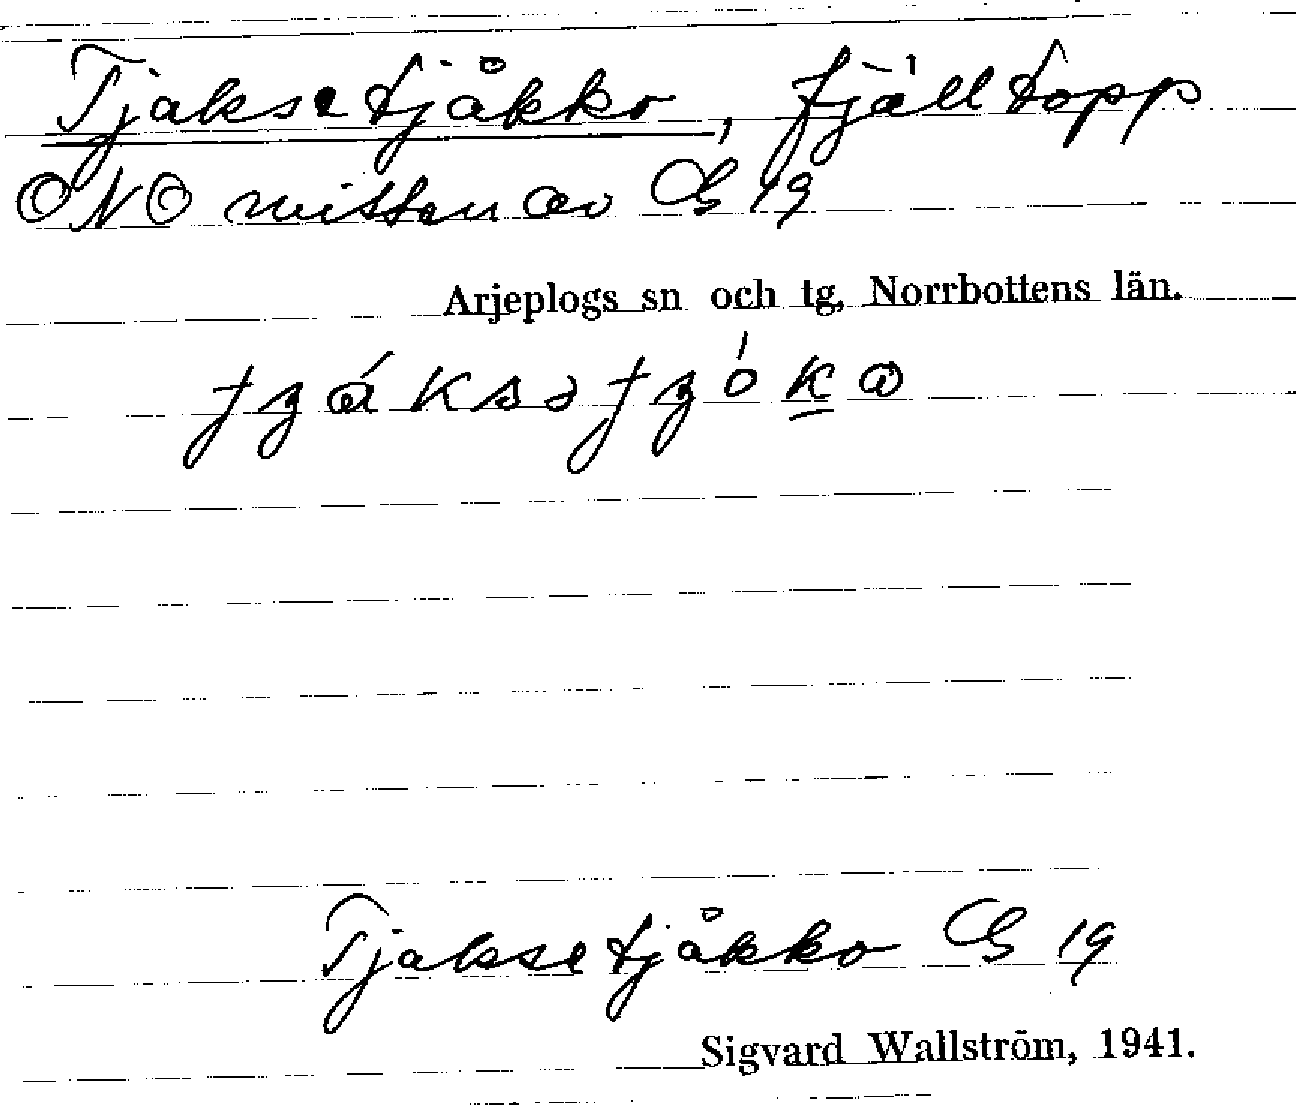 Tjaksetjåkko, fjälltopp
ONO mitten av G 19
Arjeplogs sn och tg, Norrbottens län.
Tjaksetjåkko G 19
Sigvard Wallström, 1941.